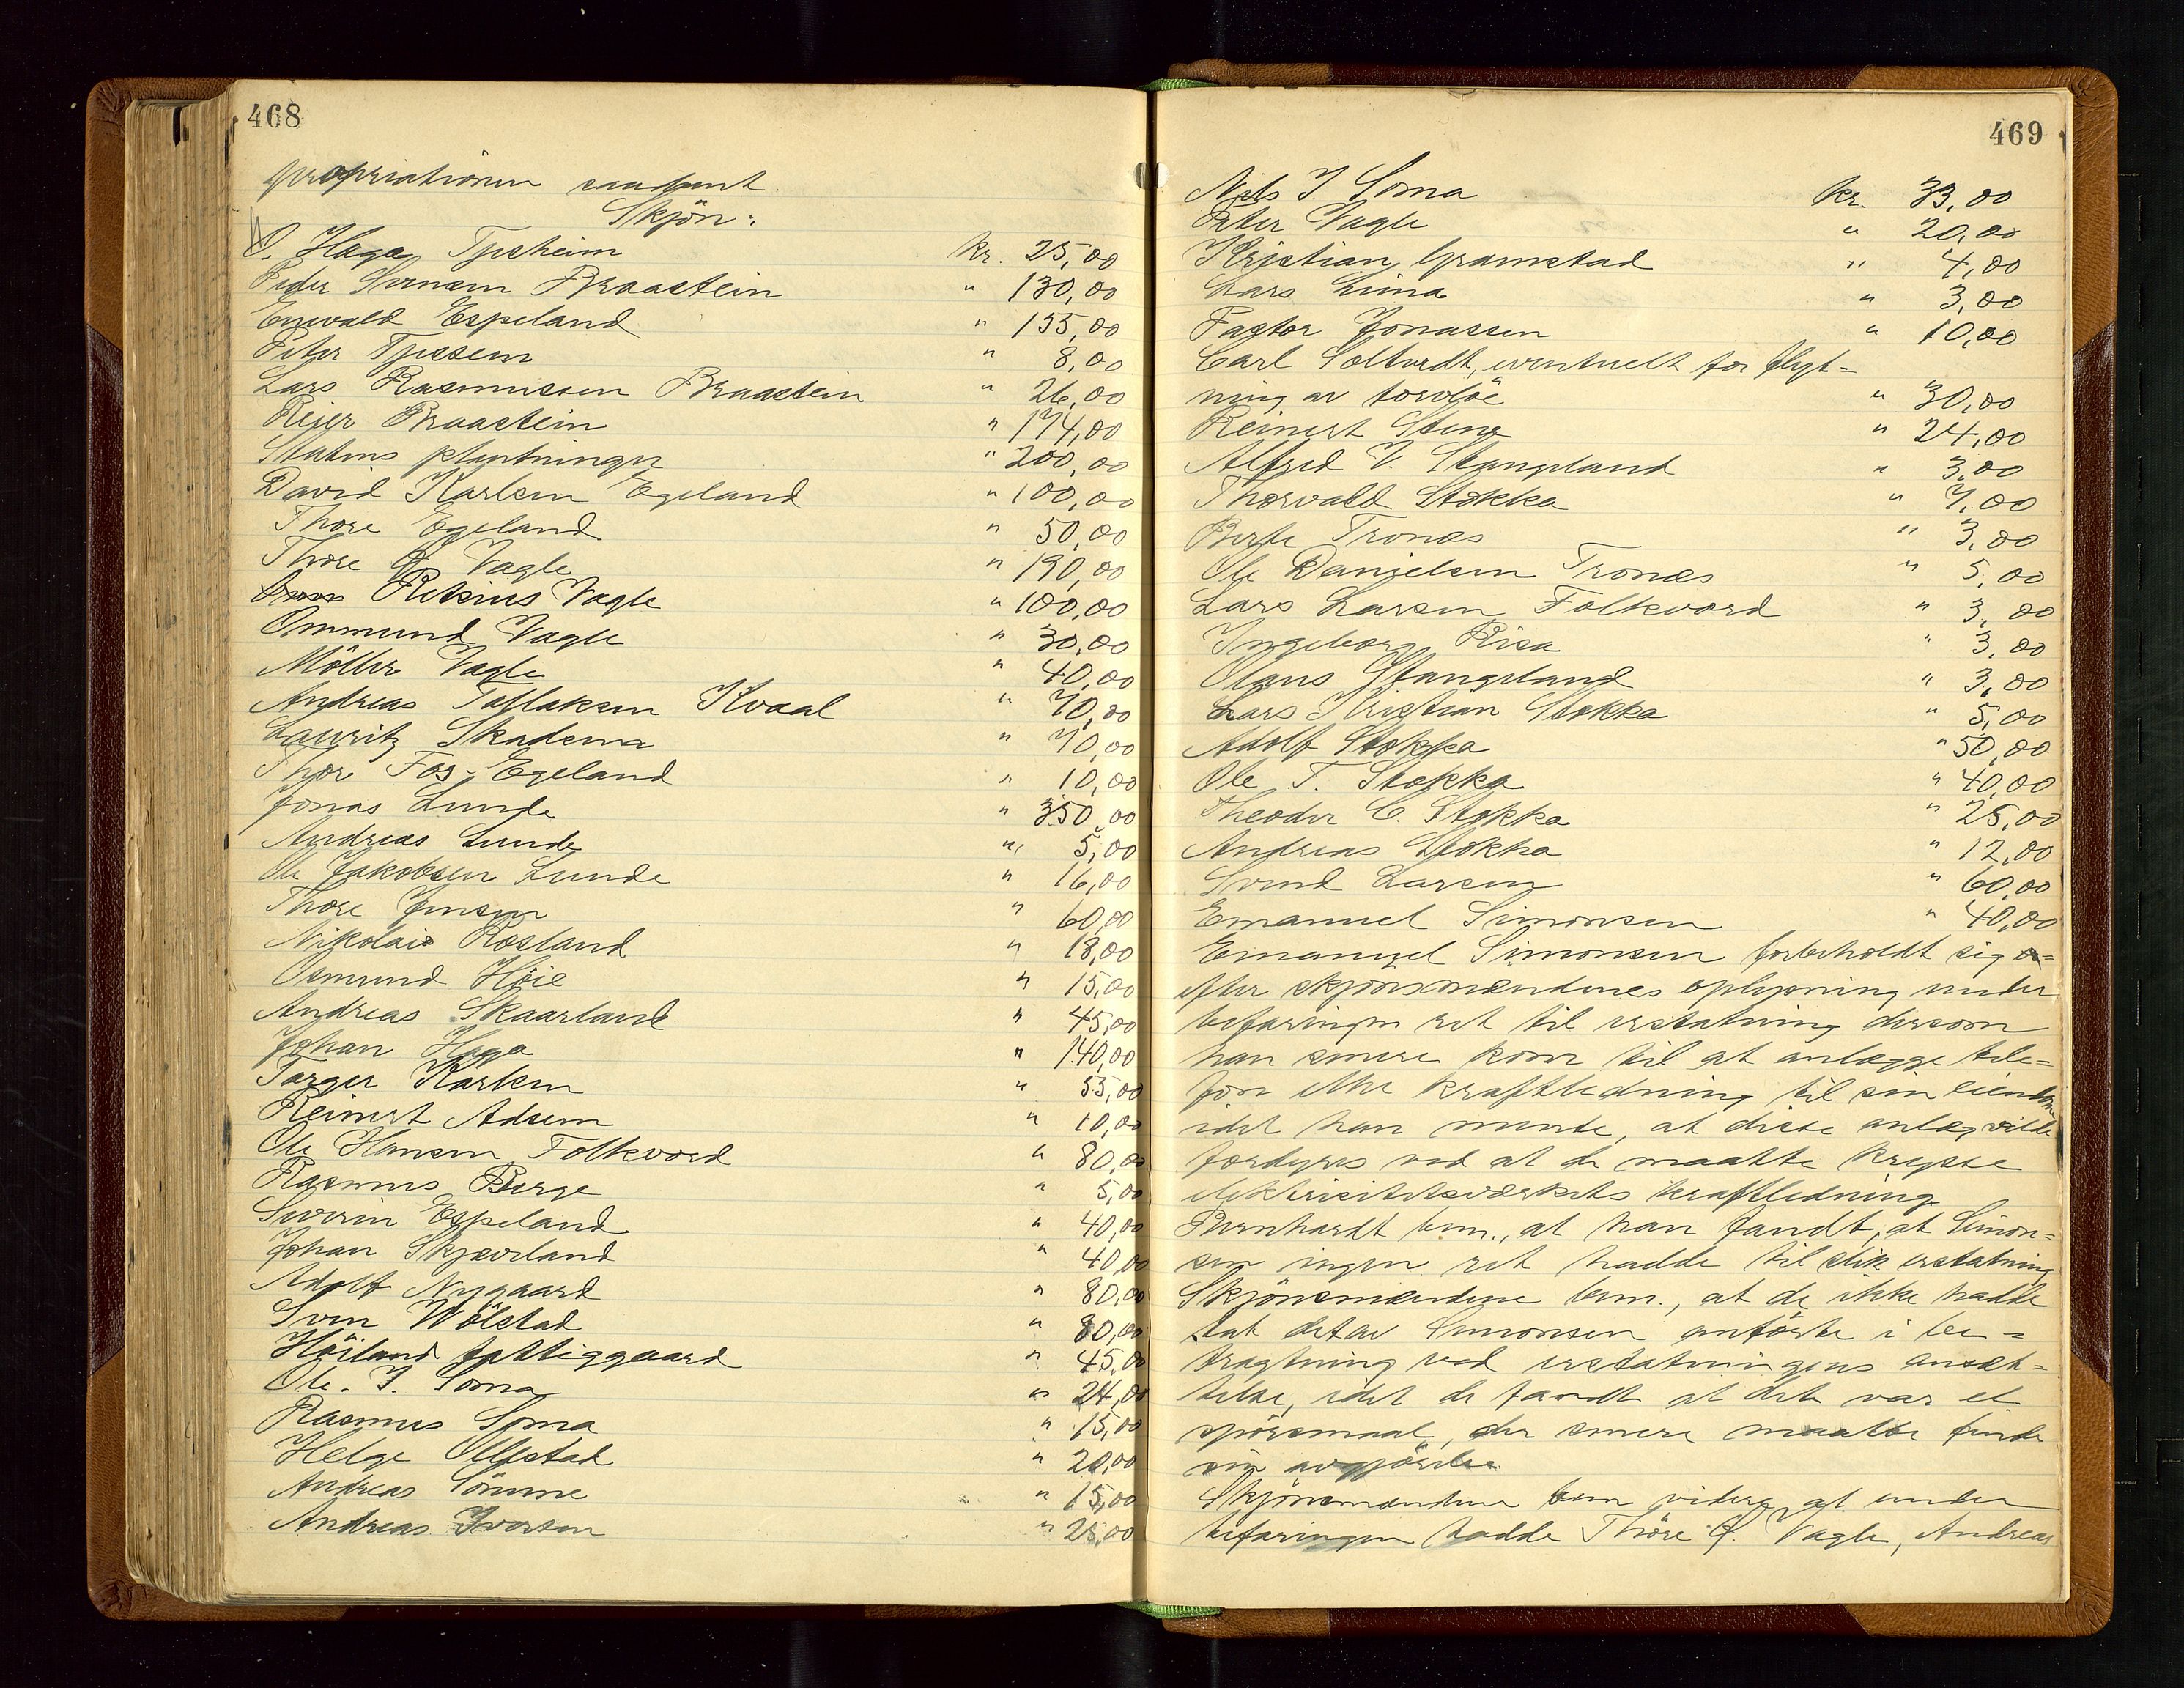 468
propriationen saadant
Skjön:
O. Haga Tjesheim kr. 25,00
Peder Svensen Braastein " 130,00
Enevald Espeland " 155,00
Peter Tjessem " 8,00
Lars Rasmussen Braastein " 26,00
Reier Braastein " 174,00
Statens plantninger " 200,00
David Karlsen Egeland " 100,00
Thore Egeland " 50,00
Thore G. Vagle " 190,00
Retsius Vagle " 100,00
Ommund Vagle " 30,00
Möller Vagle " 40,00
Andreas Tollaksen Kvaal " 70,00
Lauritz Skadsem " 70,00
Thore Fos-Egeland " 10,00
Jonas Lunde " 350,00
Andreas Lunde " 5,00
Ole Jakobsen Lunde " 16,00
Thore Jensen " 60,00
Nikolai Rosland " 18,00
Osmund Höie " 15,00
Andreas Skaarland " 45,00
Johan Haga " 140,00
Torger Karlsen " 55,00
Reinert Adsem " 10,00
Ole Hansen Folkvord " 80,00
Rasmus Berge " 5,00
Severin Espeland " 40,00
Johan Skjæveland " 40,00
Adolf Nygaard " 80,00
Sven Wölstad " 80,00
Höiland fattiggaard " 45,00
Ole J. Soma " 24,00
Rasmus Soma " 15,00
Helge Ollestad " 20,00
Andreas Sömme " 15,00
Andreas Iversen " 25,00
469
Nils J. Soma kr. 33,00
Peter Vagle " 20,00
Kristian Gramstad " 4,00
Lars Lima " 3,00
Fagtor Jonassen " 10,00
Carl Soltvedt, eventuelt for flyt-
ning av torvlöe " 30,00
Reinert Stene " 24,00
Alfred V. Stangeland " 3,00
Thorvald Stokka " 7,00
Berte Tronæs " 3,00
Ole Danielsen Tronæs " 5,00
Lars Larsen Folkvord " 3,00
Ingeborg Risa " 3,00
Olaus Stangeland " 3,00
Lars Kristian Stokka " 5,00
Adolf Stokka " 50,00
Ole T. Stokka " 40,00
Theodor C. Stokka " 25,00
Andreas Stokka " 12,00
Svend Larsen " 60,00
Emanuel Simonsen " 40,00
Emanuel Simonsen forbeholdt sig
efter skjönsmændenes oplysning under
befaringen ret til erstatning dersom
han senere kom til at anlægge tele-
fon eller kraftledning til sin eiendom
idet han mente, at disse anlæg vilde
fordyres ved at de maatte krysse
elektricitetsverkets kraftledning.
Bernhardt bem., at han fandt, at Simon-
sen ingen ret hadde til slik erstatning
Skjönsmændene bem., at de ikke hadde
tat det av Simonsen anförte i be-
tragtning ved erstatningens ansæt-
telse, idet de fandt at det var et
spörsmaal, der senere maatte finde
sin avgjörelse.
Skjönsmændene bem videre, at under
befaringen hadde Thore G. Vagle, Andreas